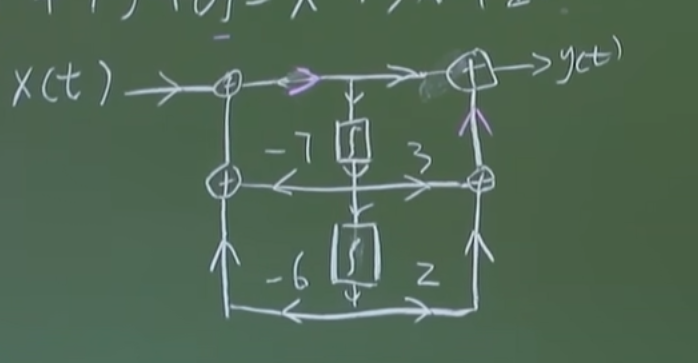 x(t)
+
+
y(t)
-7
∫
3
+
+
-6
∫
2